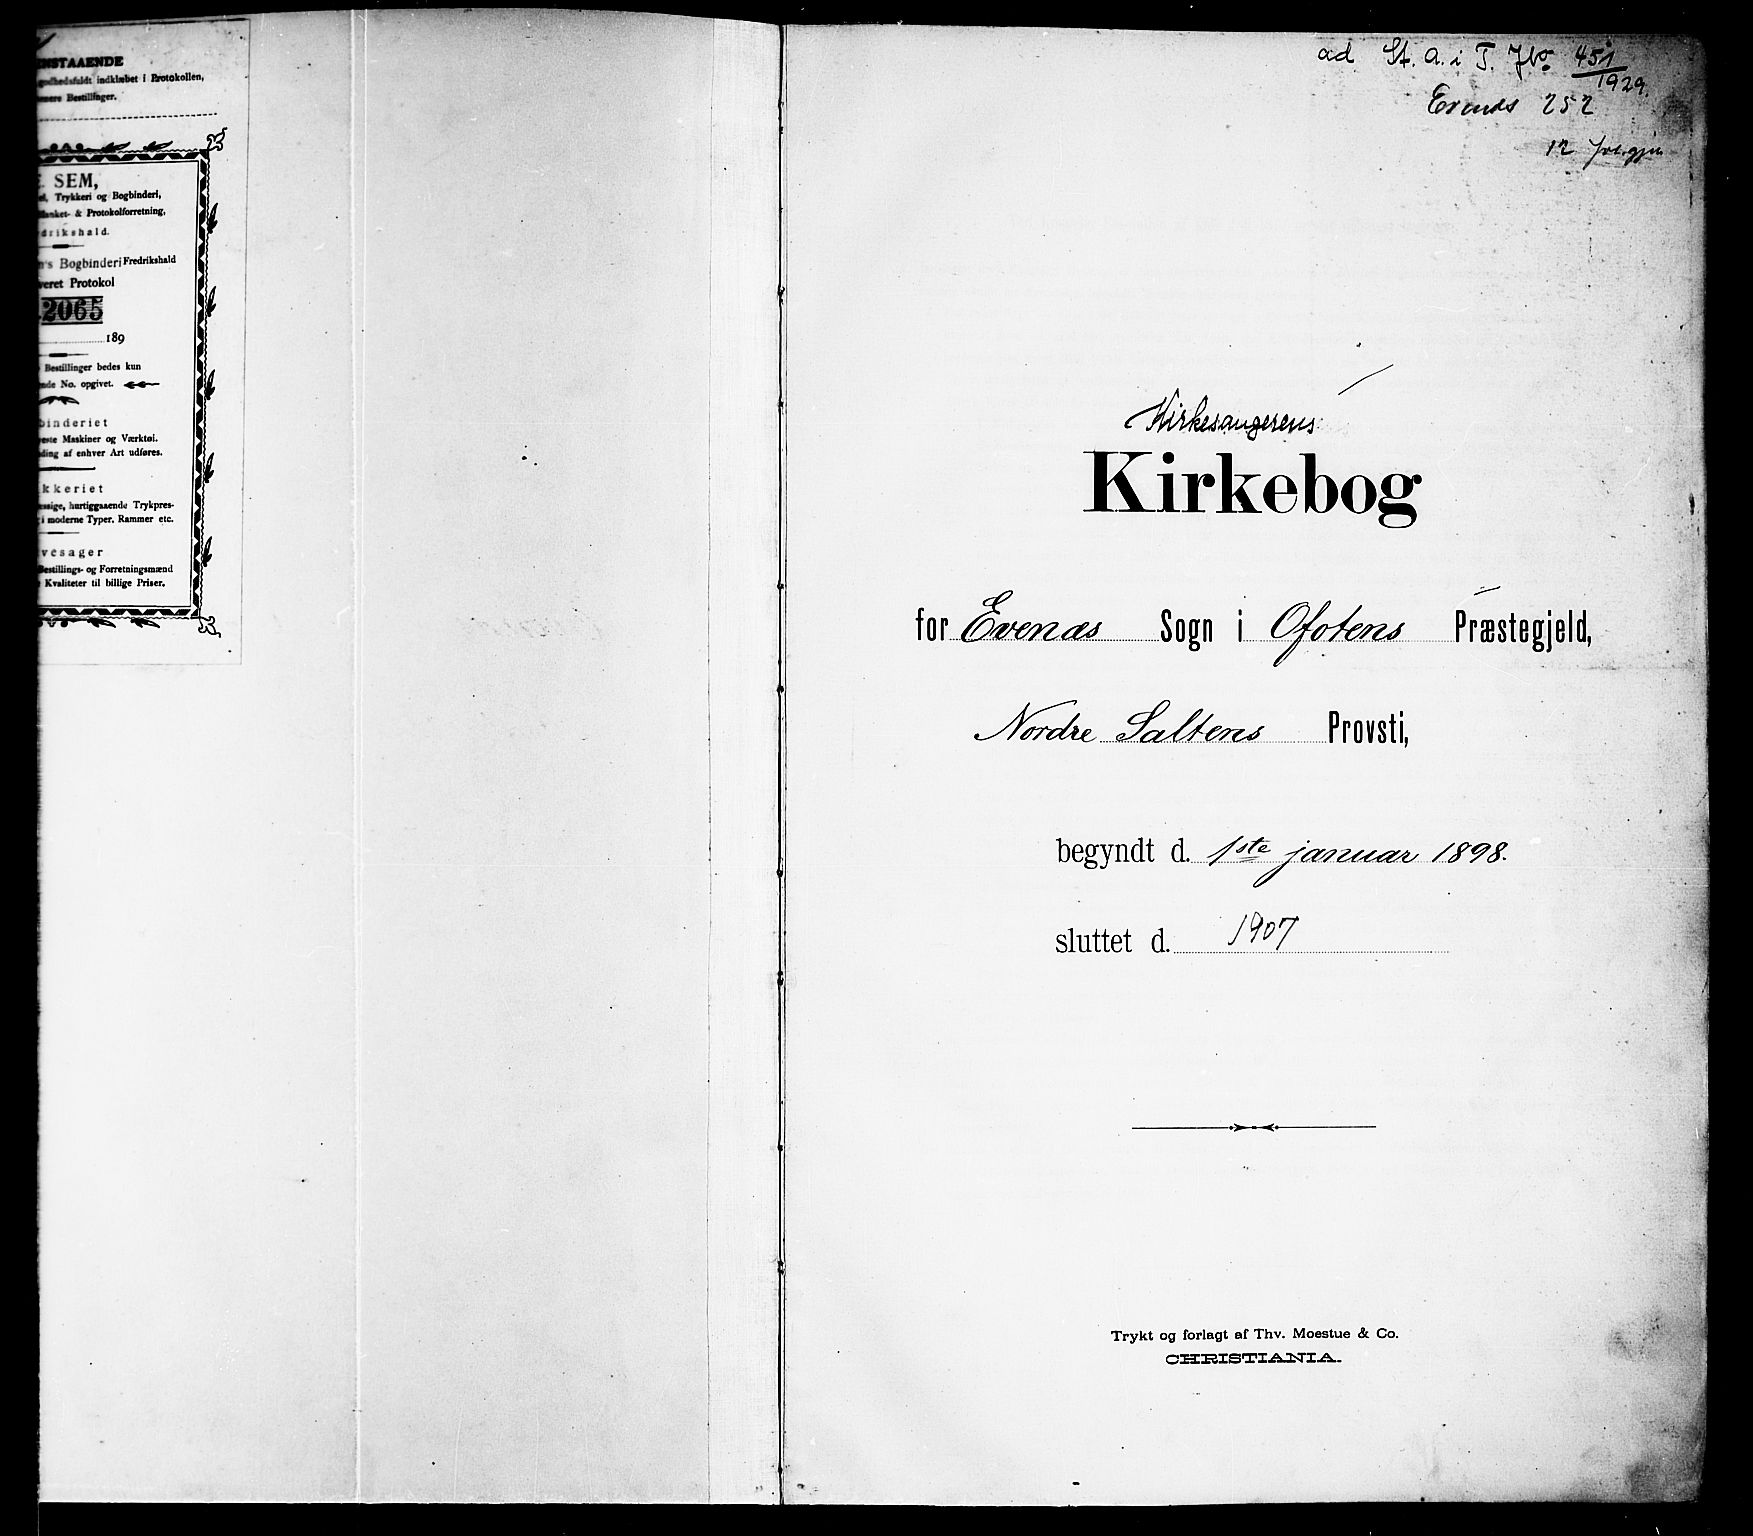 ENSTAAENDE
godhedsfuldt indklæbet i Protokollen,
enere Bestillinger.
E SEM,
el, Trykkeri og Bogbinderi,
lanket- & Protokolforretning,
drikshald.
n's Bogbinderi Fredrikshald
veret Protokol
.2065
189
Bestillinger bedes kun
nde No. opgivet.
binderiet
veste Maskiner og Værktøi.
ding af enhver Art udføres.
kkeriet
essige, hurtiggaaende Trykpres-
i moderne Typer. Rammer etc.
vesager
Bestillings- og Forretningsmænd
Kvaliteter til billige Priser.
ad St. A. i T. Jno. 451
1929.
Evenæs 252
12
Kirkesangerens
Kirkebog
for Evenæs Sogn i Ofotens Præstegjeld,
Nordre Saltens Provsti,
begyndt d. 1ste januar 1898.
sluttet d. 1907
Trykt og forlagt af Thv. Moestue & Co.
CHRISTIANIA.